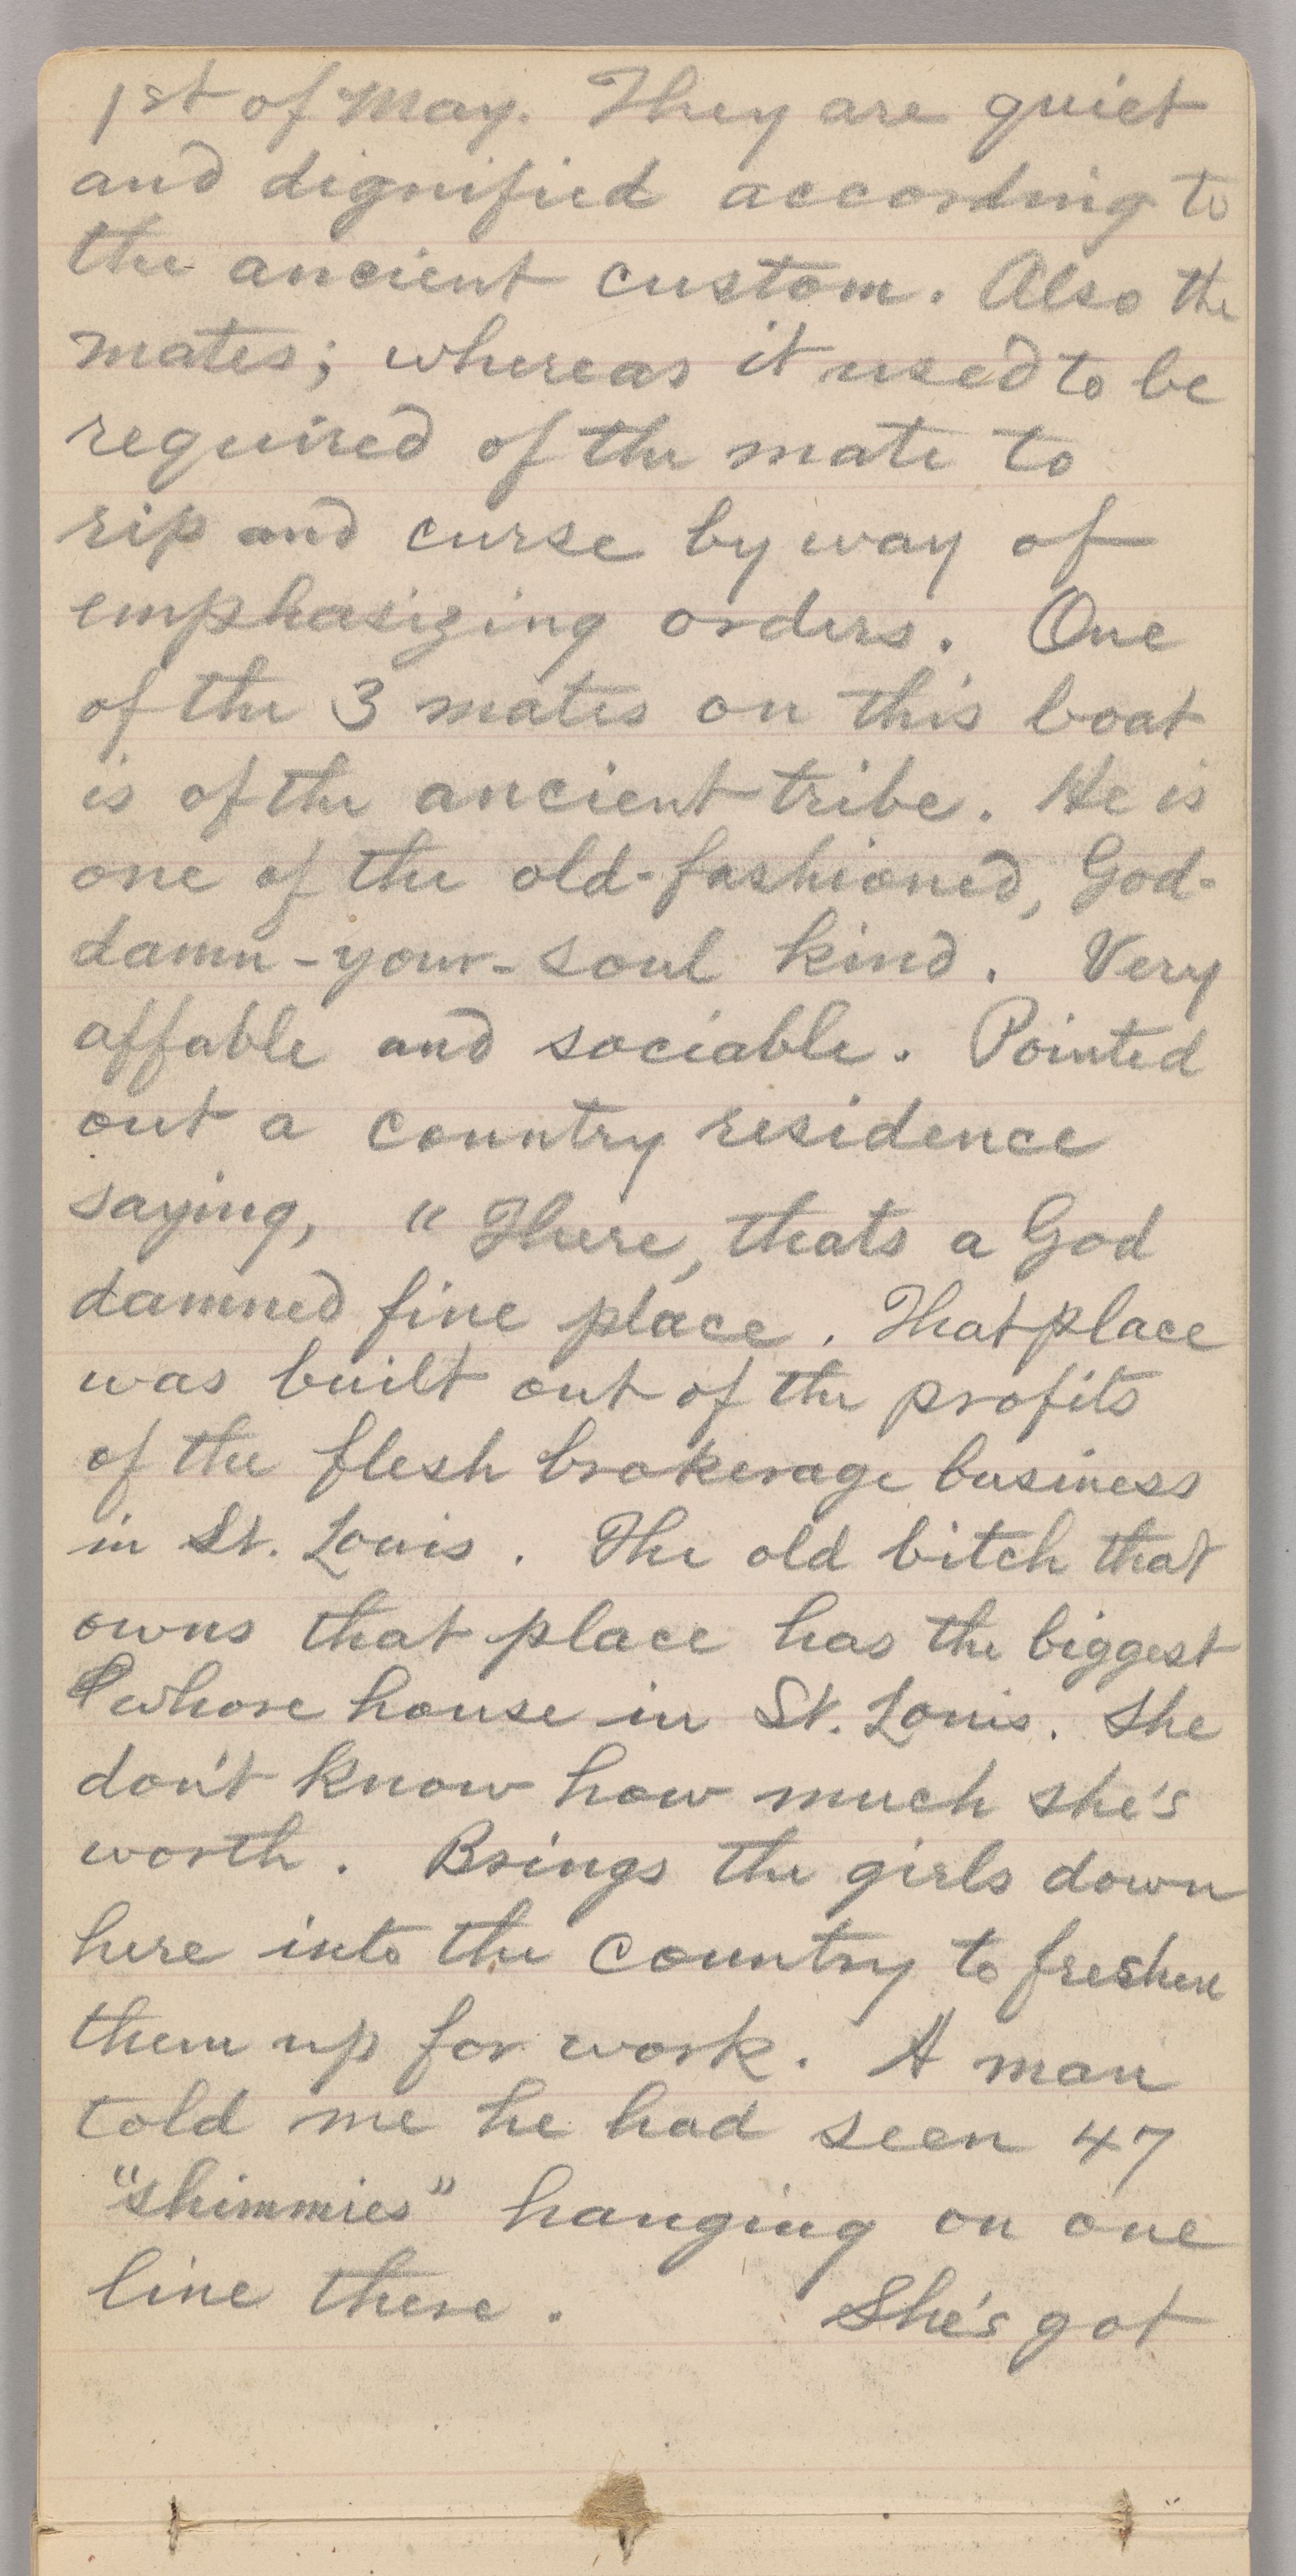 1st of May. They are quiet
and dignified according to
the ancient custom. Also the
mates; whereas it used to be
required of the mate to
rip and curse by way of
emphasizing orders. One
of the 3 mates on this boat
is of the ancient tribe. He is
one of the old-fashioned, God-
damn-your-soul kind. Very
affable and sociable. Pointed
out a country residence
saying, "There, thats a God
damned fine place. That place
was built out of the profits
of the flesh brokerage business
in St. Louis. The old bitch that
owns that place has the biggest
whore house in St. Louis. She
don't know how much she's
worth. Brings the girls down
here into the country to freshen
them up for work. A man
told me he had seen 47
"shimmies" hanging on one
line there. She's got